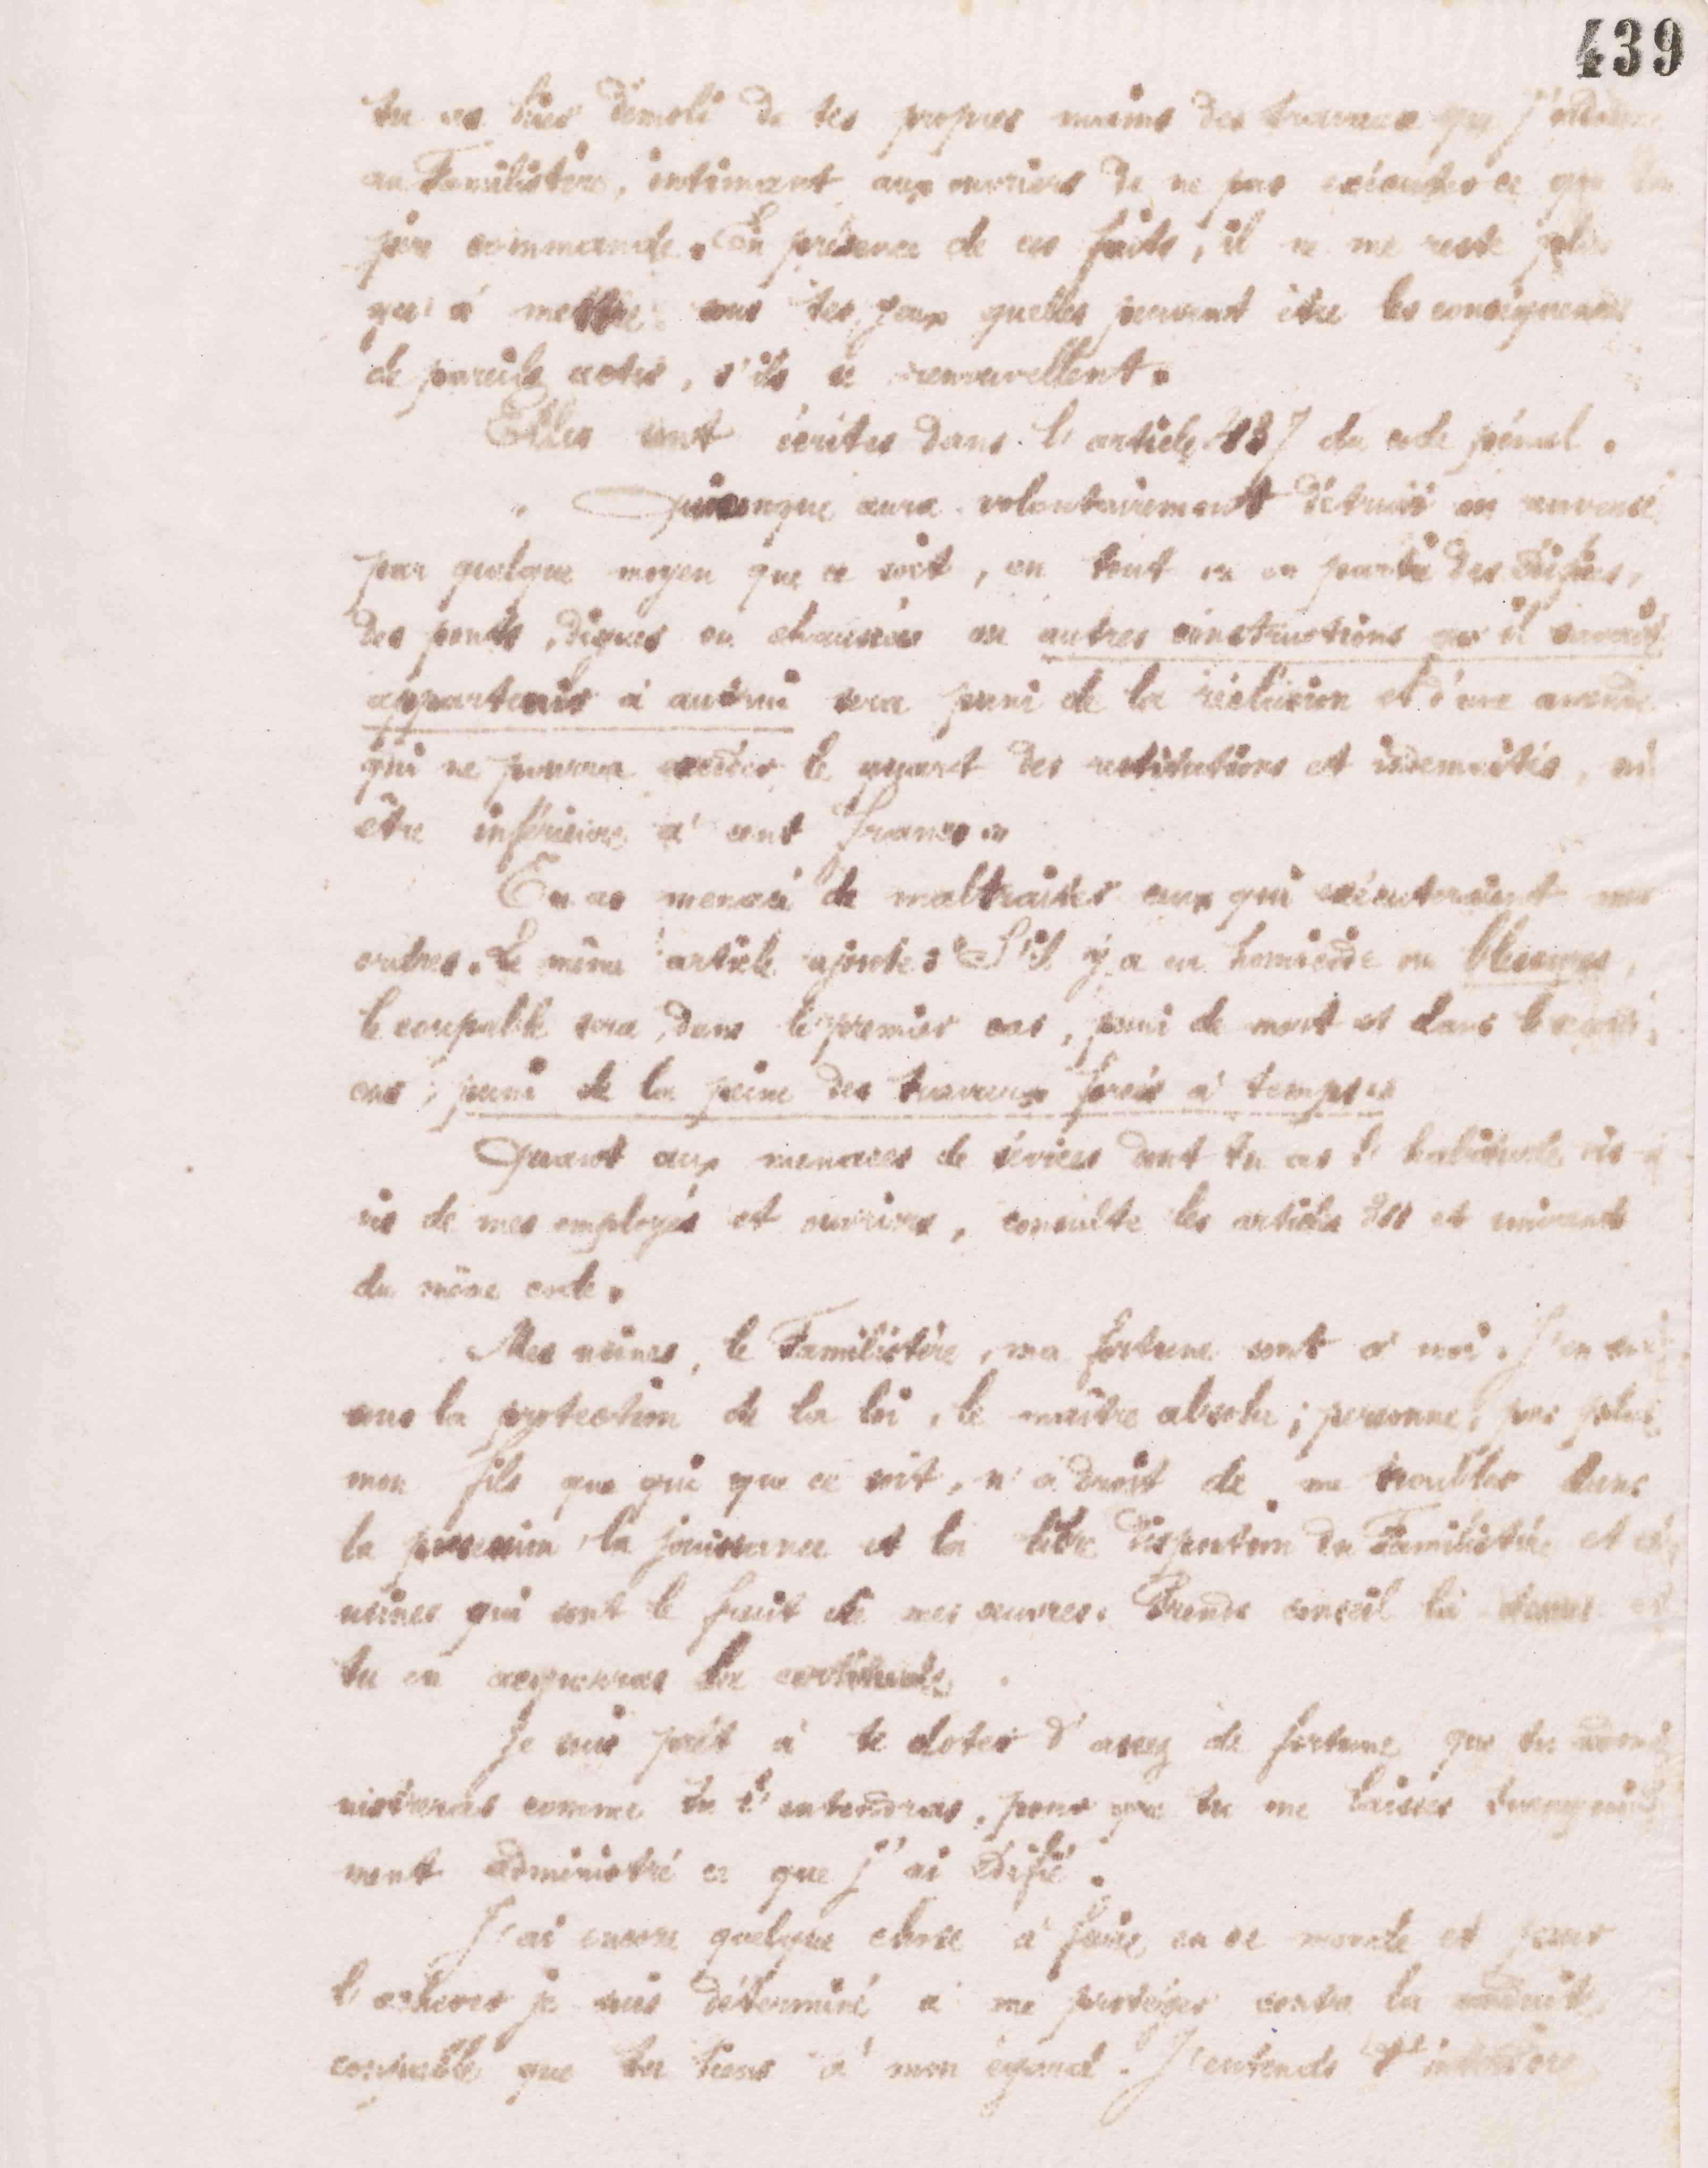 439
tu as hier démoli de tes propres mains des travaux que j'ordonne
au Familistère, intimant aux ouvriers de ne pas exécuter ce que ton
père commande. En présence de ces faits, il ne me reste plus
qu'à mettre sous tes yeux quelles peuvent être les conséquences
de pareils actes, s'ils se renouvellent.
Elles sont écrites dans l'article 437 du code pénal.
" Quiconque aura volontairement détruit ou renversé
par quelque moyen que ce soit, en tout ou en partie des édifices,
des ponts, digues ou chaussées ou autres constructions qu'il savait
appartenir à autrui sera puni de la réclusion et d'une amende
qui ne pourra excéder le quart des restitutions et indemnités, ni
être inférieure à cent francs "
Tu as menacé de maltraiter ceux qui exécuteraient mes
ordres. Le même article ajoute : " S'il y a eu homicide ou blessures,
le coupable sera, dans le premier cas, puni de mort et dans le second
cas, puni de la peine des travaux forcés à temps "
Quant aux menaces de sévices dont tu as l'habitude vis à
vis de mes employés et ouvriers, consulte les articles 311 et suivants
du même code.
Mes usines, le Familistère, ma fortune sont à moi. J'en suis,
sous la protection de la loi, le maître absolu ; personne, pas plus
mon fils que qui que ce soit, n'a droit de me troubler dans
la possession, la jouissance et la libre disposition du Familistère et des
usines qui sont le fruit de mes œuvres. Prends conseil là dessus et
tu en acquerras la certitude.
Je suis prêt à te doter d'assez de fortune que tu admi
nistreras comme tu l'entendras, pour que tu me laisses tranquille
ment administrer ce que j'ai édifié.
J'ai encore quelque chose à faire en ce monde et pour
l'achever je suis déterminé à me protéger contre la conduite
coupable que tu tiens à mon égard. J'entends t'interdire